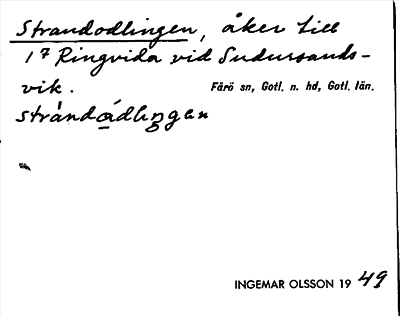 Strandodlingen, åker till
1⁷ Ringvida vid Sudersands-
vik. Fårö sn, Gotl. n. hd, Gotl. län.
strandådlingen
INGEMAR OLSSON 19 49